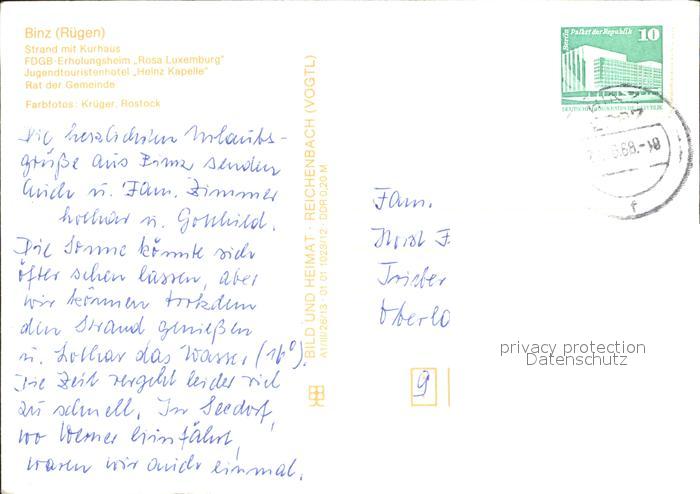 Binz (Rügen)
Strand mit Kurhaus
FDGB-Erholungsheim „Rosa Luxemburg"
Jugendtouristenhotel „Heinz Kapelle"
Rat der Gemeinde
Farbfotos: Krüger, Rostock
Die herzlichsten Urlaubs-
grüße aus Binz senden
Euch u. Fam. Zimmer
Lothar u. Gotthild.
Die Sonne könnte sich
öfter sehen lassen, aber
wir können trotzdem
den Strand genießen
u. Lothar das Wasser (16°).
Die Zeit vergeht leider viel
zu schnell. In Seedorf,
wo Werner hinfährt,
waren wir auch einmal.
BILD UND HEIMAT · REICHENBACH (VOGTL)
A1/III/26/13 · 01 01 1023/12 · DDR 0,20 M
Berlin Palast der Republik
10
DEUTSCHE DEMOKRATISCHE REPUBLIK
Fam.
Horst F
Trieber
Oberlo
9
privacy protection
Datenschutz